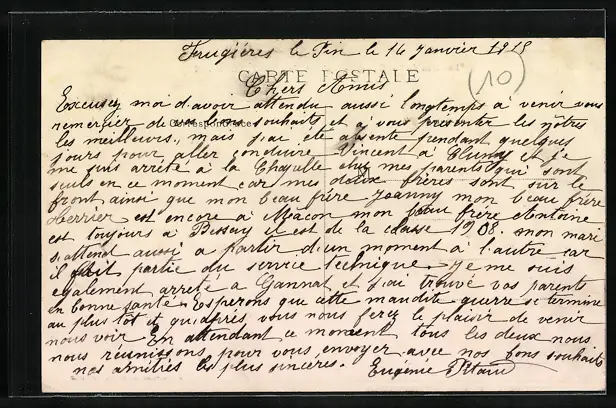 Frugières le Pin le 16 Janvier 1915
CARTE POSTALE
(10)
Chers Amis
Excusez moi d'avoir attendu aussi longtemps à venir vous
remercier de vos bons souhaits et à vous présenter les nôtres
Correspondance
les meilleurs, mais j'ai été absente pendant quelques
jours pour aller conduire Vincent à Cluny et je
me suis arrêté à la Chapelle chez mes parents qui sont
seuls en ce moment car mes deux frères sont sur le
front ainsi que mon beau frère Joanny mon beau frère
est encore à Macon mon beau frère Antoine
est toujours à Bissey il est de la classe 1908. mon mari
s'attend aussi a partir d'un moment à l'autre car
il fait partie du service technique. Je me suis
également arrêté à Gannat et j'ai trouvé vos parents
en bonne santé. Espérons que cette maudite guerre se termine
au plus tôt et qu'après vous nous ferez le plaisir de venir
nous voir En attendant ce moment tous les deux nous
nous réunissons pour vous envoyer avec nos bons souhaits
nos amitiés les plus sincères. Eugénie